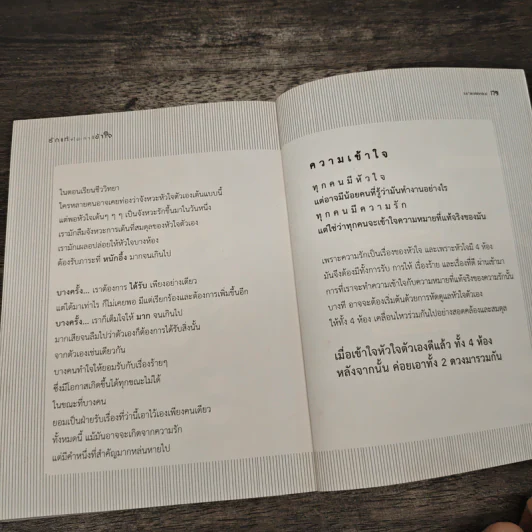 ในตอนเรียนชีววิทยา
ใครหลายคนอาจเคยท่องว่าจังหวะหัวใจตัวเองเต้นแบบนี้
แต่พอหัวใจเต้นๆ ๆ ๆ เป็นจังหวะรักขึ้นมาในวันหนึ่ง
เรามักลืมจังหวะการเต้นที่สมดุลของหัวใจตัวเอง
เรามักเผลอปล่อยให้หัวใจบางห้อง
ต้องรับภาระที่ หนักอึ้ง มากจนเกินไป
บางครั้ง... เราต้องการ ได้รับ เพียงอย่างเดียว
แต่ได้มาเท่าไร ก็ไม่เคยพอ มีแต่เรียกร้องและต้องการเพิ่มขึ้นอีก
บางครั้ง... เราก็เต็มใจให้ มาก จนเกินไป
มากเสียจนลืมไปว่าตัวเองก็ต้องการได้รับสิ่งนั้น
จากตัวเองเช่นเดียวกัน
บางคนทำใจให้ยอมรับกับเรื่องร้ายๆ
ซึ่งมีโอกาสเกิดขึ้นได้ทุกขณะไม่ได้
ในขณะที่บางคน
ยอมเป็นฝ่ายรับเรื่องที่ว่านี้เอาไว้เองเพียงคนเดียว
ทั้งหมดนี้ แม้มันอาจจะเกิดจากความรัก
แต่มีคำหนึ่งที่สำคัญมากหล่นหายไป
ความเข้าใจ
ทุกคนมีหัวใจ
แต่อาจมีน้อยคนที่รู้ว่ามันทำงานอย่างไร
ทุกคนมีความรัก
แต่ใช่ว่าทุกคนจะเข้าใจความหมายที่แท้จริงของมัน
เพราะความรักเป็นเรื่องของหัวใจ และเพราะหัวใจมี 4 ห้อง
มันจึงต้องมีทั้งการรับ การให้ เรื่องร้าย และเรื่องที่ดี ผ่านเข้ามา
การที่เราจะทำความเข้าใจกับความหมายที่แท้จริงของความรักนั้น
บางที อาจจะต้องเริ่มต้นด้วยการหัดดูแลหัวใจตัวเอง
ให้ทั้ง 4 ห้อง เคลื่อนไหวร่วมกันไปอย่างสอดคล้องและสมดุล
เมื่อเข้าใจหัวใจตัวเองดีแล้ว ทั้ง 4 ห้อง
หลังจากนั้น ค่อยเอาทั้ง 2 ดวงมารวมกัน